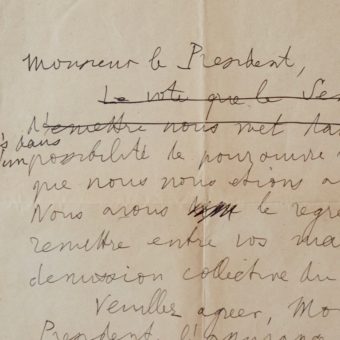 Monsieur le President,
Le vote que le Se
remettre nous met
dans
impossibilité de poursuivre
que nous nous etions a
Nous avons le regre
remettre entre vos ma
demission collective du
Veuillez agreer, Mo
President, l'